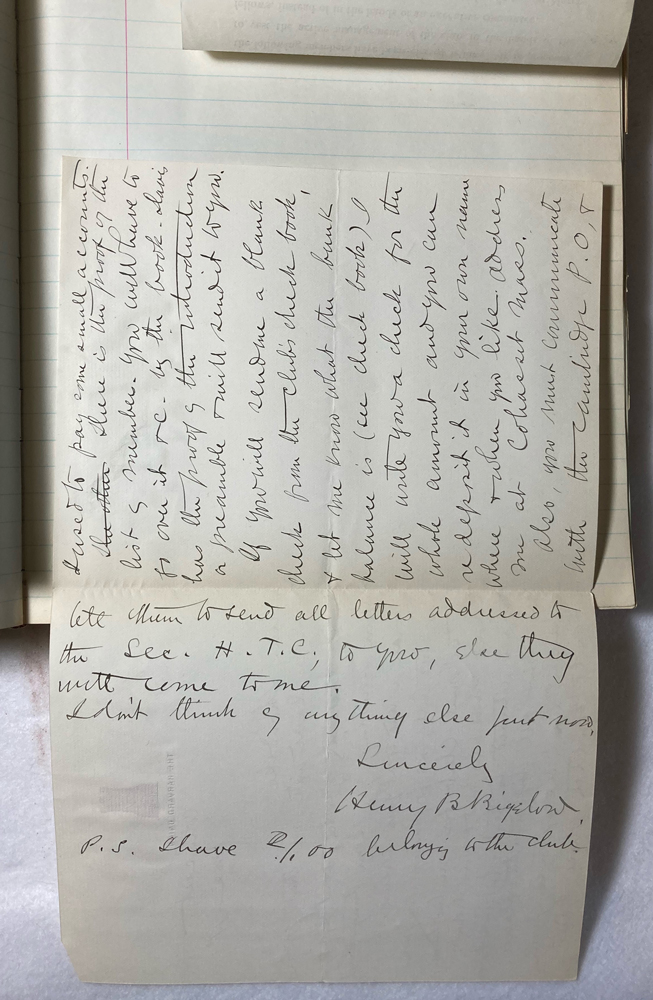 I used to pay some small accounts.
In other there is the proof of the
list of members. You will have to
go over it & C. by the book. Davis
has the proof of the introduction
a preamble & will send it to you.
If you will send me a blank
check from the club's check book,
& let me know what the bank
balance is (see check book) I
will write you a check for the
whole amount and you can
redeposit it in your own name
where & when you like. address
me at Cohasset Mass.
Also, you must communicate
with the Cambridge P.O, &
tell them to send all letters addressed to
the Sec. H.T.C., to you, else they
will come to me.
I don't think of anything else just now.
Sincerely
Henry B Bigelow.
P.S. I have 1.00 belongs to the club.